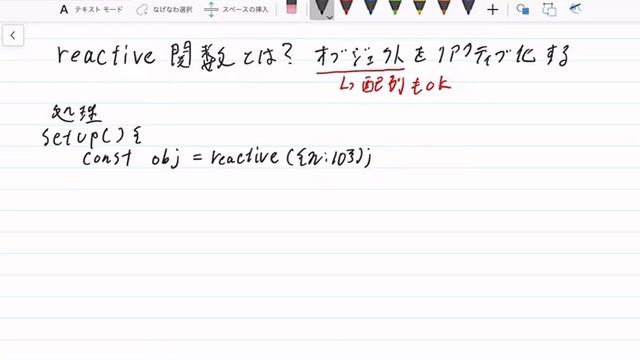 A テキスト モード なげなわ選択 スペースの挿入
reactive 関数とは? オブジェクトをリアクティブ化する
↳配列もOK
処理
setup(){
const obj = reactive({n:10});